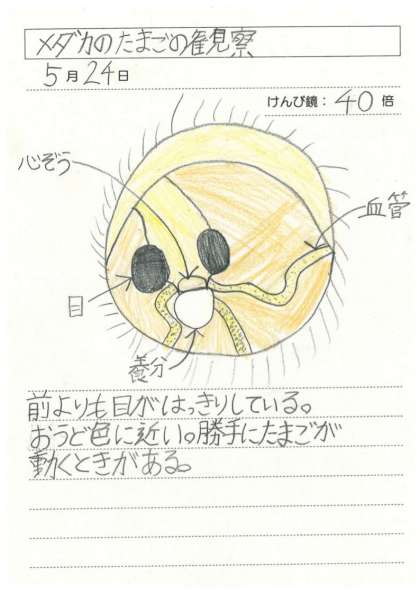 メダカのたまごの観察
5月24日
けんび鏡：40倍
心ぞう
血管
目
養分
前よりも目がはっきりしている。
おうど色に近い。勝手にたまごが
動くときがある。